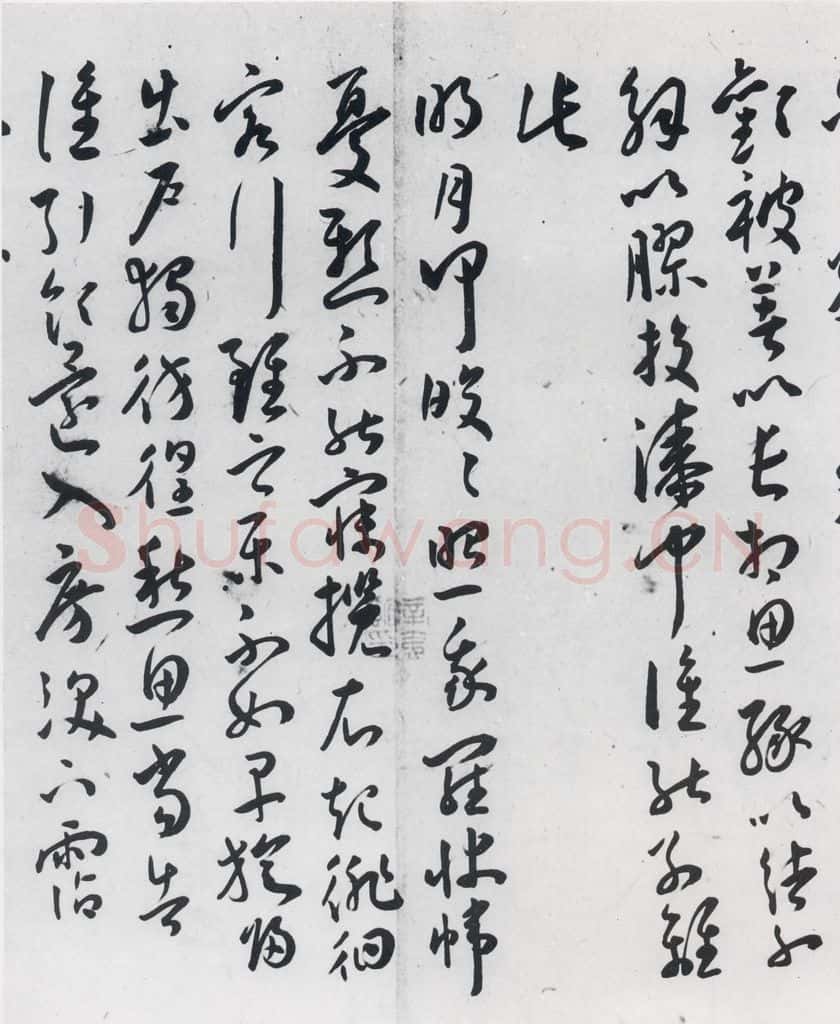 歡被著以長相思緣以結不
解以膠投漆中誰能別離
此
明月何皎〻照我羅床幃
憂愁不能寐攬衣起徘徊
客行雖云樂不如早旋歸
出戶獨彷徨愁思當告
誰引領還入房淚下霑
Shufawang.CN